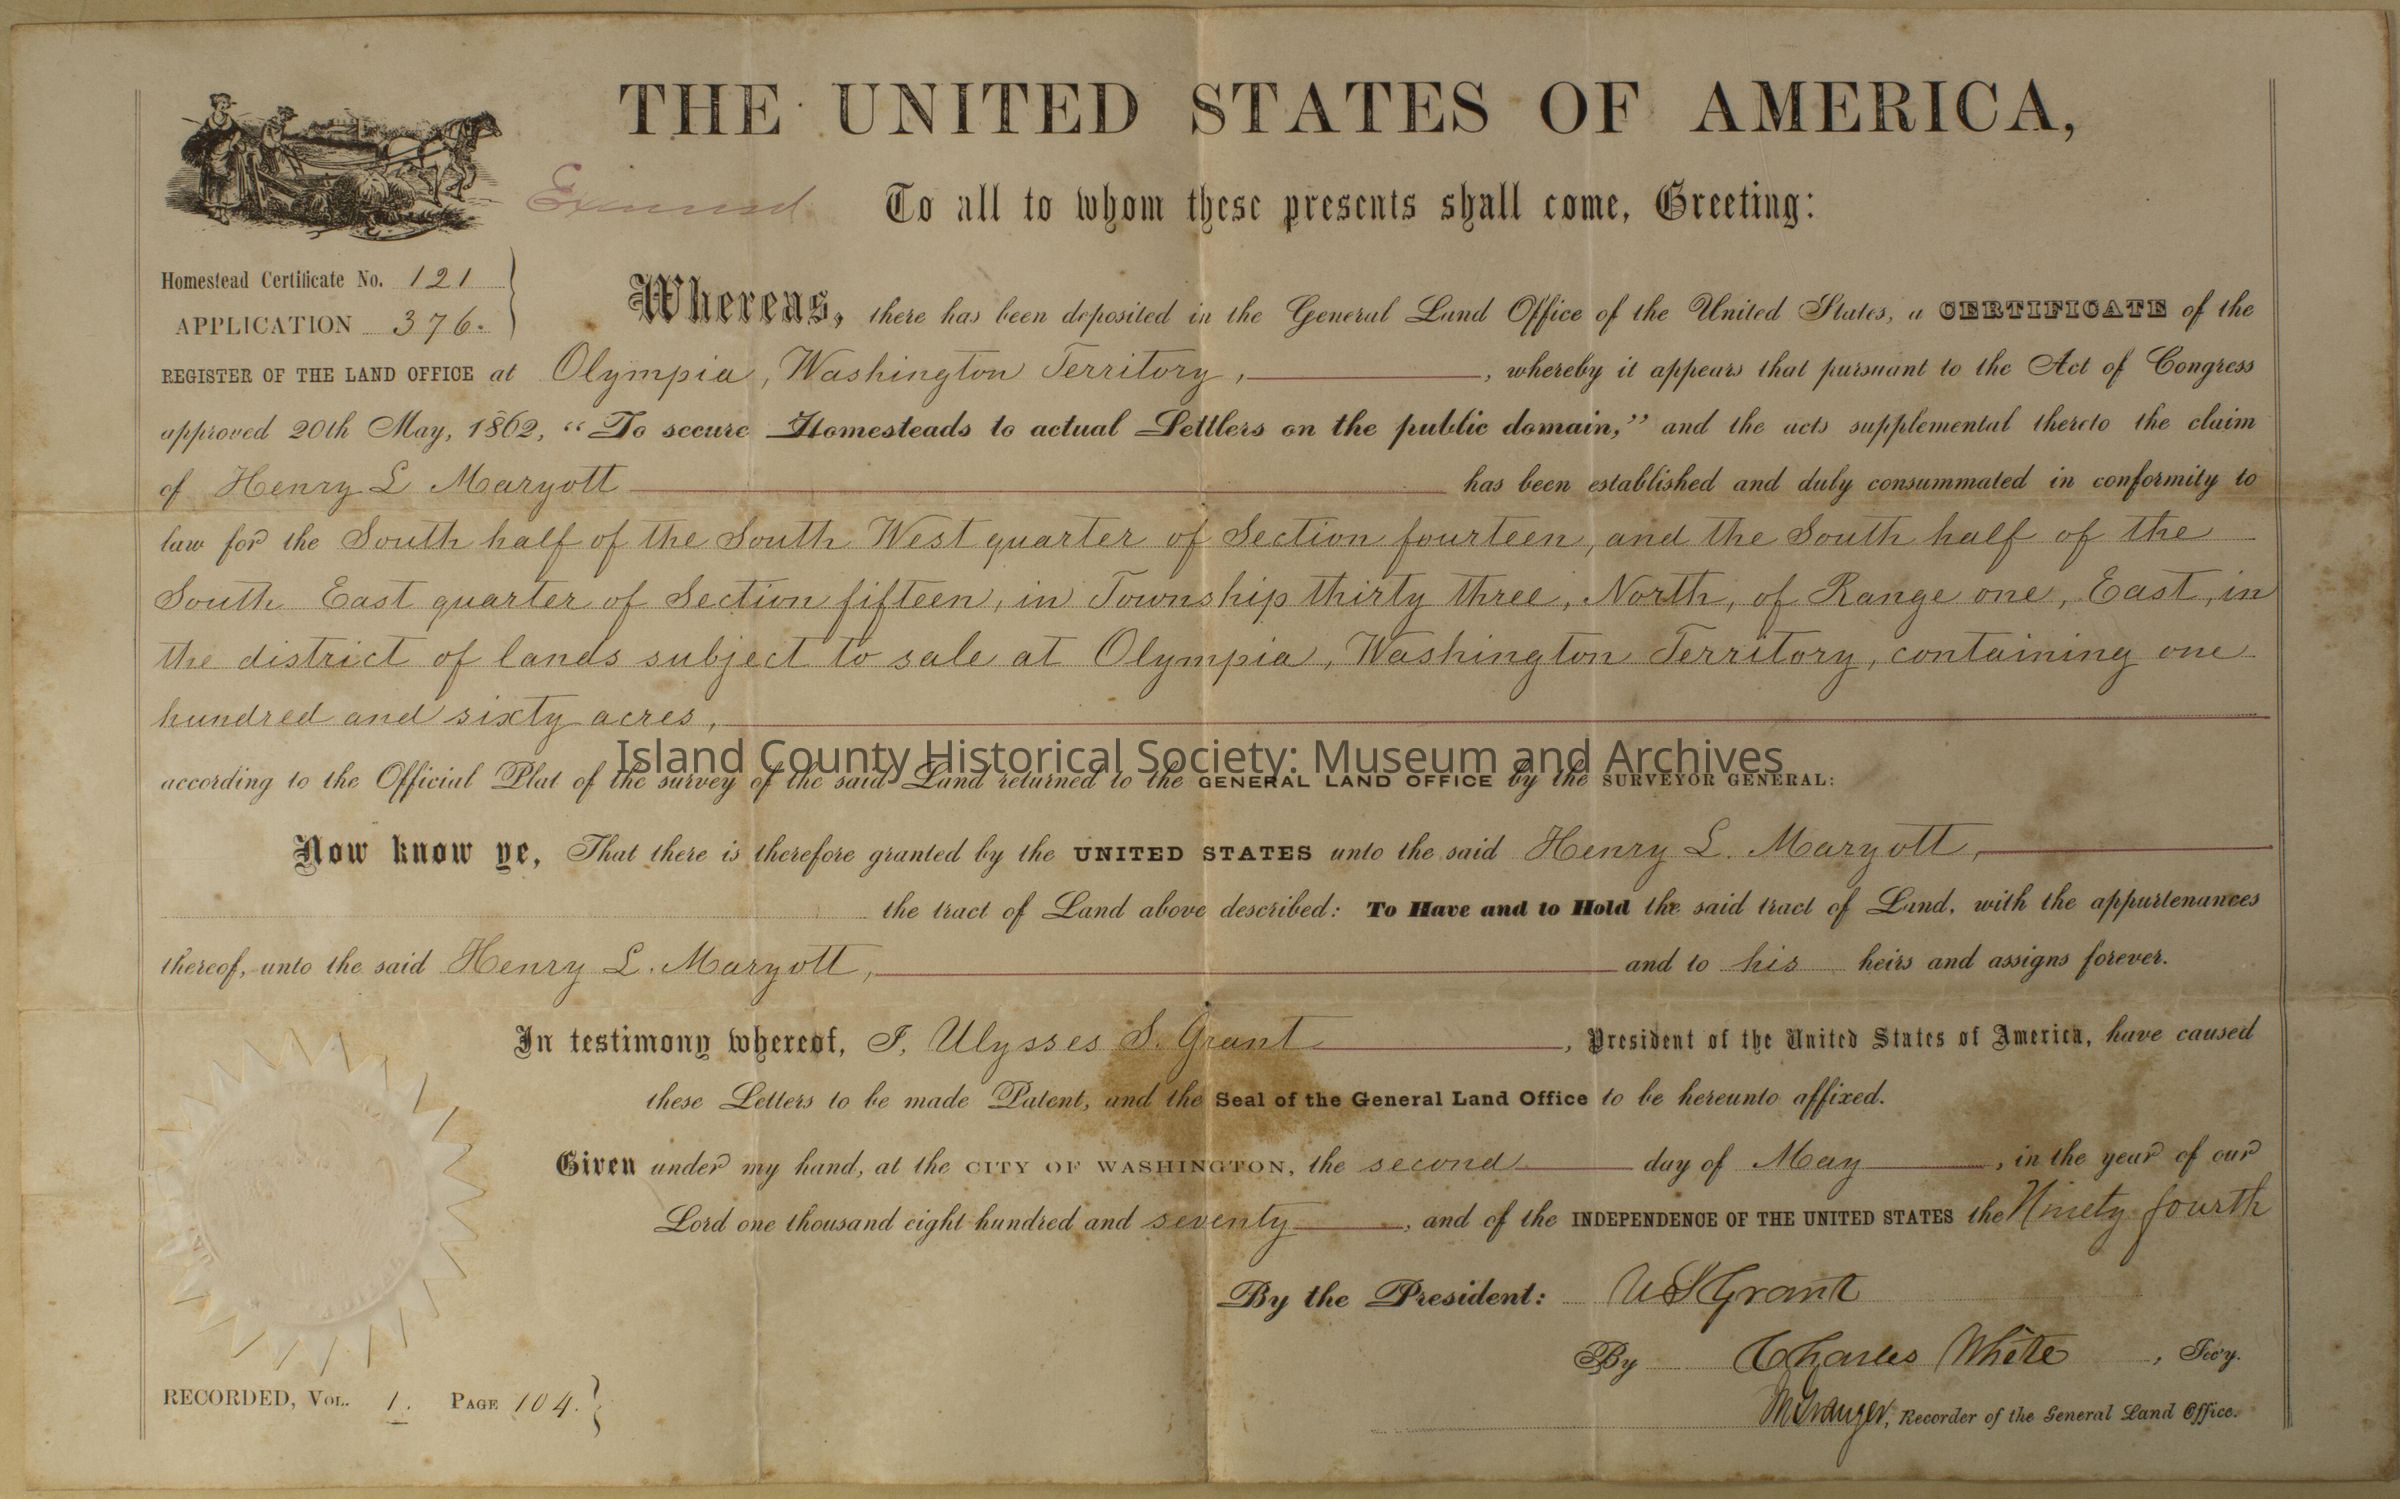 THE UNITED STATES OF AMERICA,
Examined
To all to whom these presents shall come, Greeting:
Homestead Certificate No. 121
APPLICATION 376.
Whereas, there has been deposited in the General Land Office of the United States, a CERTIFICATE of the
REGISTER OF THE LAND OFFICE at Olympia, Washington Territory, , whereby it appears that pursuant to the Act of Congress
approved 20th May, 1862, “To secure Homesteads to actual Settlers on the public domain,” and the acts supplemental thereto the claim
of Henry L Maryott has been established and duly consummated in conformity to
law for the South half of the South West quarter of Section fourteen, and the South half of the
South East quarter of Section fifteen, in Township thirty three, North, of Range one, East, in
the district of lands subject to sale at Olympia, Washington Territory, containing one
hundred and sixty acres,
Island County Historical Society: Museum and Archives
according to the Official Plat of the survey of the said Land returned to the GENERAL LAND OFFICE by the SURVEYOR GENERAL:
Now know ye, That there is therefore granted by the UNITED STATES unto the said Henry L. Maryott,
the tract of Land above described: To Have and to Hold the said tract of Land, with the appurtenances
thereof, unto the said Henry L. Maryott, and to his heirs and assigns forever.
In testimony whereof, I, Ulysses S. Grant , President of the United States of America, have caused
these Letters to be made Patent, and the Seal of the General Land Office to be hereunto affixed.
Given under my hand, at the CITY OF WASHINGTON, the second day of May , in the year of our
Lord one thousand eight hundred and seventy , and of the INDEPENDENCE OF THE UNITED STATES the Ninety fourth
By the President: U S Grant
By Charles White , Sec'y.
RECORDED, Vol. 1. Page 104.
Granger, Recorder of the General Land Office.